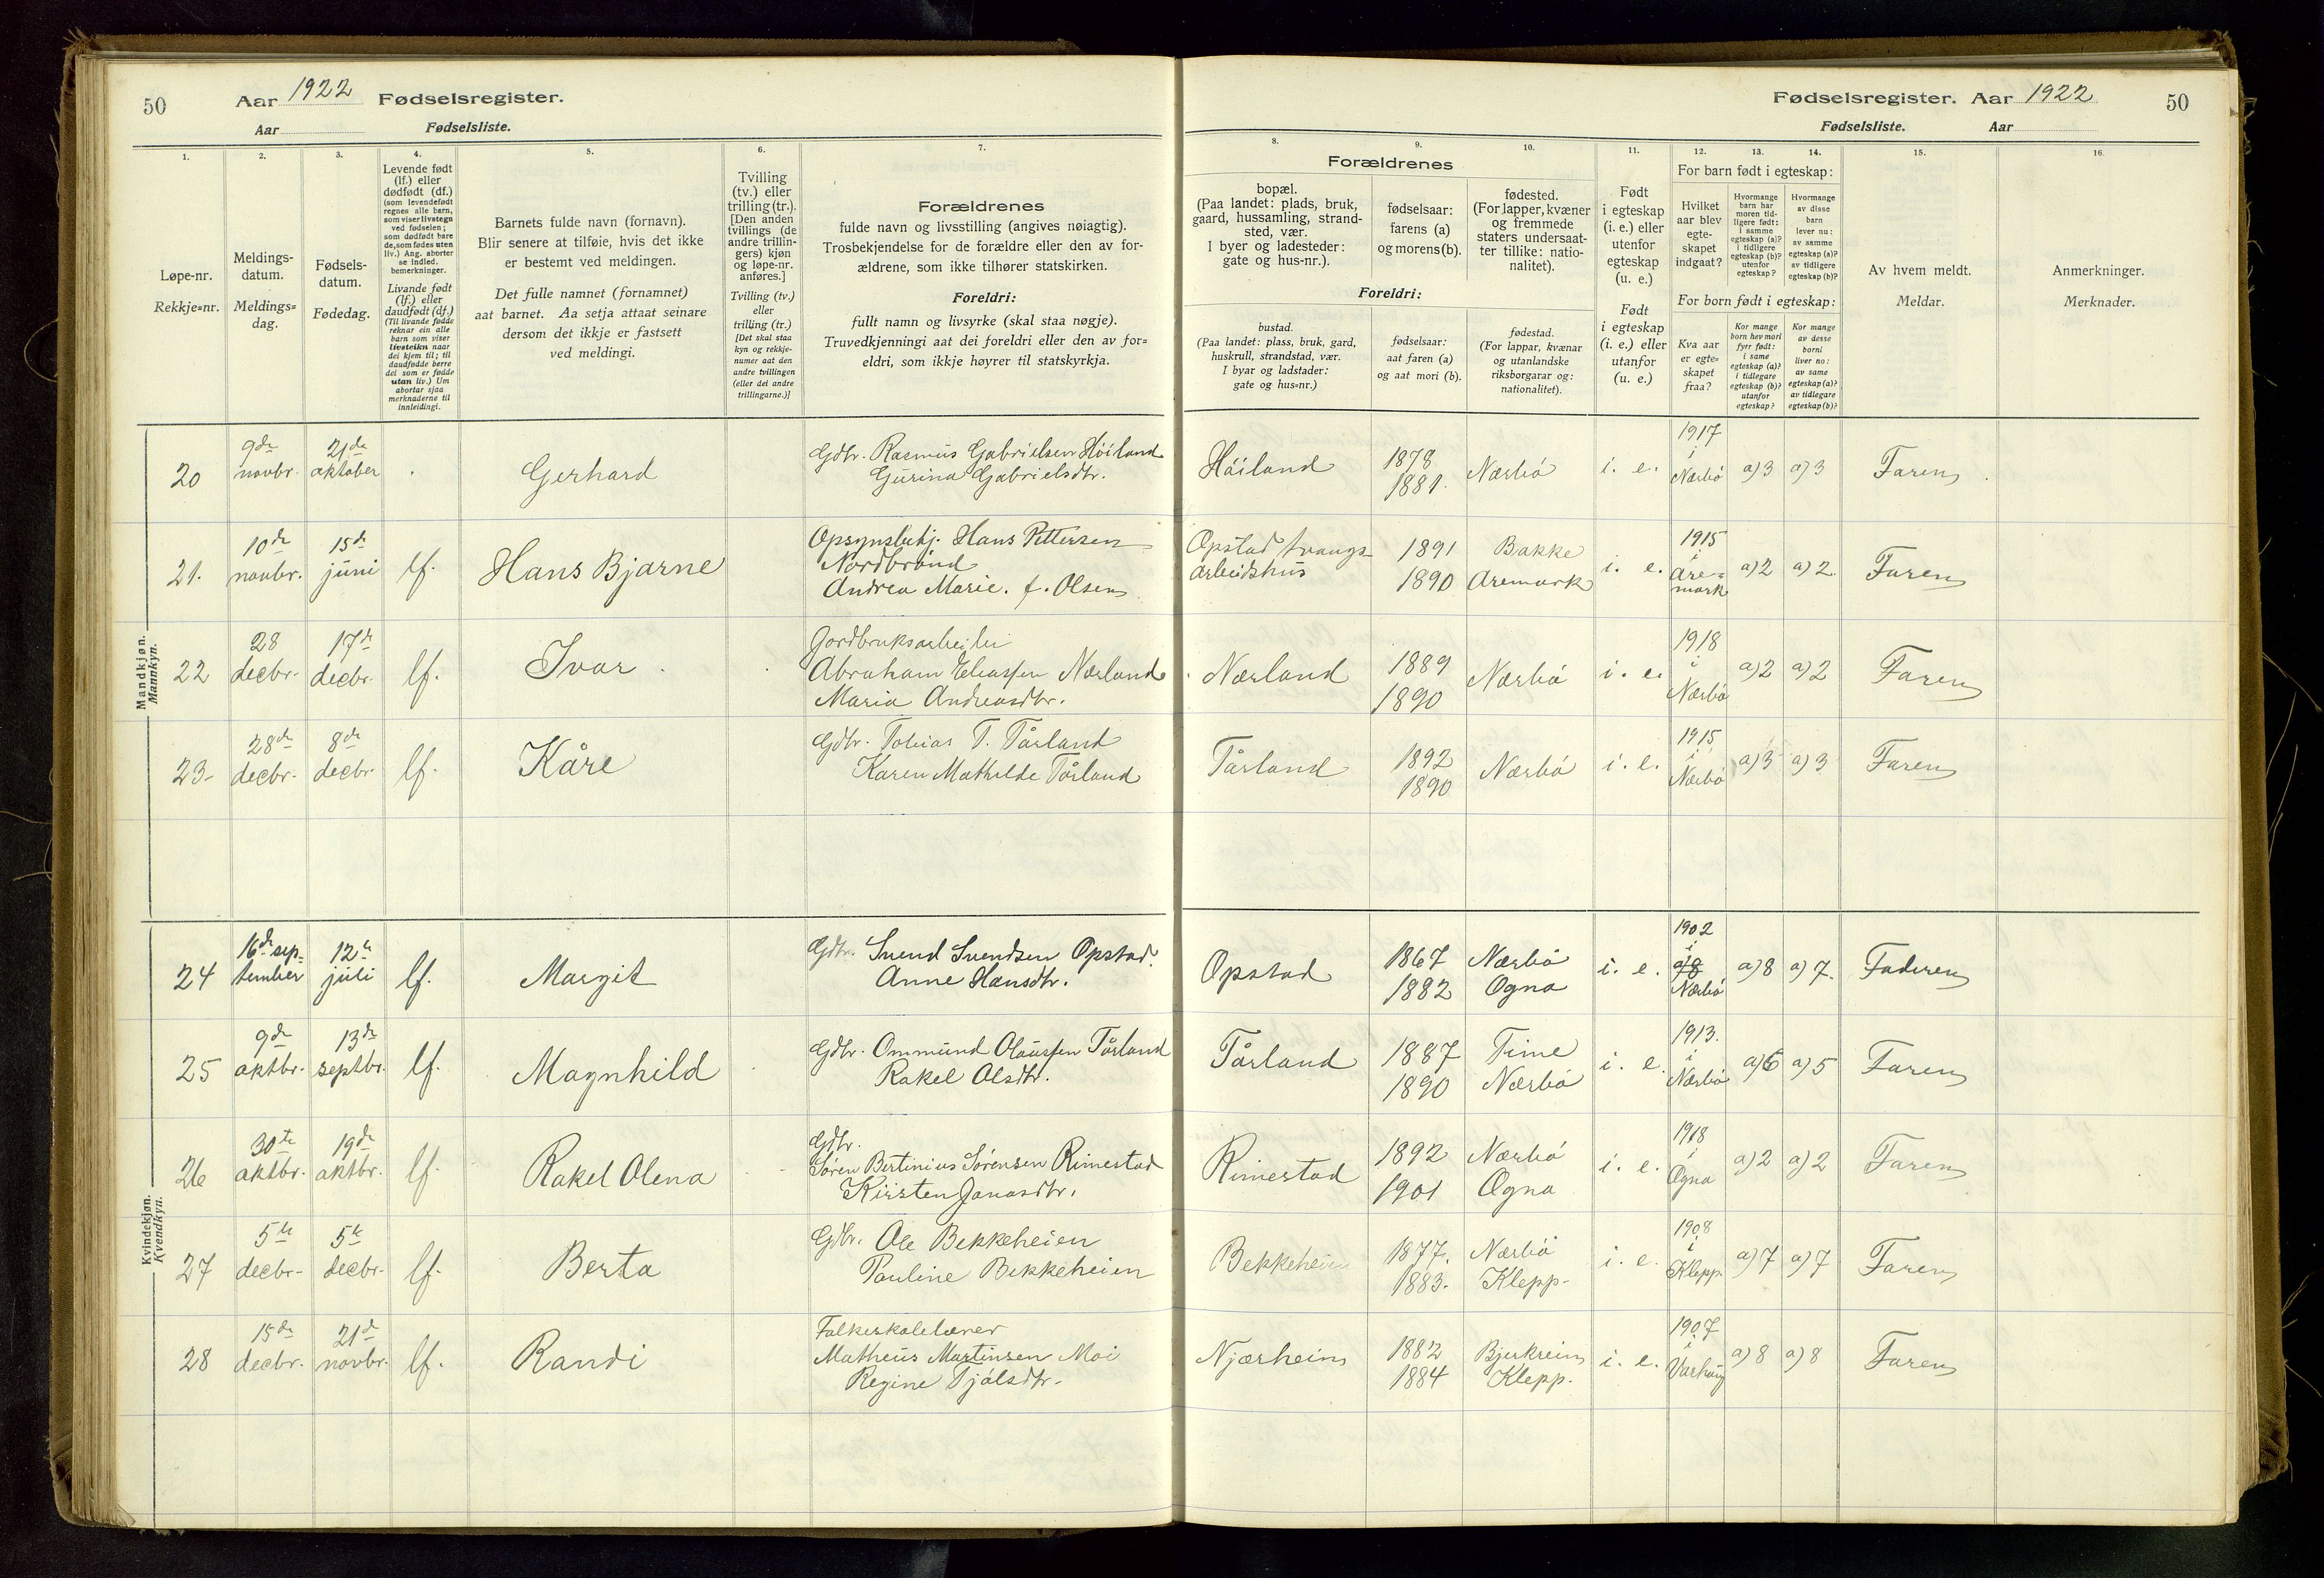 50 Aar 1922 Fødselsregister.
Aar Fødselsliste.
Fødselsregister. Aar 1922 50
Fødselsliste. Aar
1. 2. 3. 4. 5. 6. 7.
Løpe-nr.
Rekkje=nr.
Meldings-
datum.
Meldings=
dag.
Fødsels-
datum.
Fødedag.
Levende født
(lf.) eller
dødfødt (df.)
(som levendefødt
regnes alle barn,
som viser livstegn
ved fødselen;
som dødfødt bare
de, som fødes uten
liv.) Ang. aborter
se indled.
bemerkninger.
Livande født
(lf.) eller
daudfødt (df.)
(Til livande fødde
reknar ein alle
barn som viser
livsteikn naar
dei kjem til; til
daudfødde berre
dei som er fødde
utan liv.) Um
abortar sjaa
merknaderne til
innleidingi.
Barnets fulde navn (fornavn).
Blir senere at tilføie, hvis det ikke
er bestemt ved meldingen.
Det fulle namnet (fornamnet)
aat barnet. Aa setja attaat seinare
dersom det ikkje er fastsett
ved meldingi.
Tvilling
(tv.) eller
trilling (tr.).
[Den anden
tvillings (de
andre trillin-
gers) kjøn
og løpe-nr.
anføres.]
Tvilling (tv.)
eller
trilling (tr.)
[Det skal staa
kyn og rekkje-
numer aat den
andre tvillingen
(eller dei andre
trillingarne.)]
Forældrenes
fulde navn og livsstilling (angives nøiagtig).
Trosbekjendelse for de forældre eller den av for-
ældrene, som ikke tilhører statskirken.
Foreldri:
fullt namn og livsyrke (skal staa nøgje).
Truvedkjenningi aat dei foreldri eller den av for=
eldri, som ikkje høyrer til statskyrkja.
8. 9. 10. 11. 12. 13. 14. 15. 16.
Forældrenes
bopæl.
(Paa landet: plads, bruk,
gaard, hussamling, strand-
sted, vær.
I byer og ladesteder:
gate og hus-nr.).
fødselsaar:
farens (a)
og morens (b).
fødested.
(For lapper, kvæner
og fremmede
staters undersaat-
ter tillike: natio-
nalitet).
Foreldri:
bustad.
(Paa landet: plass, bruk, gard,
huskrull, strandstad, vær.
I byar og ladstader:
gate og hus=nr.)
fødselsaar:
aat faren (a)
og aat mori (b).
fødestad.
(For lappar, kvænar
og utanlandske
riksborgarar og:
nationalitet).
Født
i egteskap
(i. e.) eller
utenfor
egteskap
(u. e.)
Født
i egteskap
(i. e.) eller
utanfor
(u. e.)
For barn født i egteskap:
Hvilket
aar blev
egte-
skapet
indgaat?
Hvormange
barn har
moren tid-
ligere født:
i samme
egteskap (a)?
i tidligere
egteskap (b)?
utenfor
egteskap?
Hvormange
av disse
barn
lever nu:
av samme
egteskap (a)?
av tidligere
egteskap (b)?
For born født i egteskap:
Kva aar
er egte=
skapet
fraa?
Kor mange
born hev mori
fyrr født:
i same
egteskap (a)?
i tidlegare
egteskap (b)?
utanfor
egteskap?
Kor mange
av desse
borni
liver no:
av same
egteskap (a)?
av tidlegare
egteskap (b)?
Av hvem meldt.
Meldar.
Anmerkninger.
Merknader.
Mandkjøn.
Mannkyn.
20 9de novbr. 21de oktober Gerhard Gdbr. Rasmus Gabrielsen Höiland
Gurina Gabrielsdtr.
Höiland 1878 1881. Nærbö i. e. 1917 i Nærbö a)3 a)3 Faren
21. 10de novbr. 15de juni lf. Hans Bjarne Opsynsbetj. Hans Pettersen
Nordbrönd
Andrea Marie. f. Olsen
Opstad tvangs-
arbeidshus 1891 1890 Bakke Aremark i. e. 1915 i Are=
mark a)2 a)2 Faren
22 28 decbr. 17de decbr. lf. Ivar Jordbruksarbeider
Abraham Eliassen Nærland
Maria Andreasdtr.
Nærland 1889 1890 Nærbö i. e. 1918 i Nærbö a)2 a)2 Faren
23- 28de decbr. 8de decbr. lf. Kåre Gdbr. Tobias T. Tårland
Karen Mathilde Tårland
Tårland 1892 1890 Nærbö i. e. 1915 i Nærbö a)3 a)3 Faren
Kvindekjøn.
Kvendkyn.
24 16de sep=
tember 12te juli lf. Margit Gdbr. Svend Svendsen Opstad.
Anne Hansdtr.
Opstad 1867 1882 Nærbö Ogna i. e. 1902 i a)8 Nærbö a)8 a)7. Faderen
25 9de oktbr. 13de septbr. lf. Magnhild Gdbr. Ommund Olaussen Tårland
Rakel Olsdtr.
Tårland 1887 1890 Time Nærbö i. e. 1913. i Nærbö a)6 a)5 Faren
26 30te oktbr. 19de oktbr. lf. Rakel Olena Gdbr.
Sören Bertinius Sörensen Rimestad
Kirsten Jonasdtr.
Rimestad 1892 1901 Nærbö Ogna i. e. 1918 i Ogna a)2 a)2 Faren
27 5te decbr. 5te decbr. lf. Berta Gdbr. Ole Bekkeheien
Pauline Bekkeheien
Bekkeheien 1877. 1883. Nærbö Klepp. i. e. 1908 i Klepp. a)7 a)7 Faren
28 15de decbr. 21de novbr. lf. Randi Folkeskolelærer
Matheus Martinsen Moi
Regine Tjölsdtr.
Njærheim 1882 1884 Bjerkreim Klepp. i. e. 1907 i Varhaug a)8 a)8 Faren